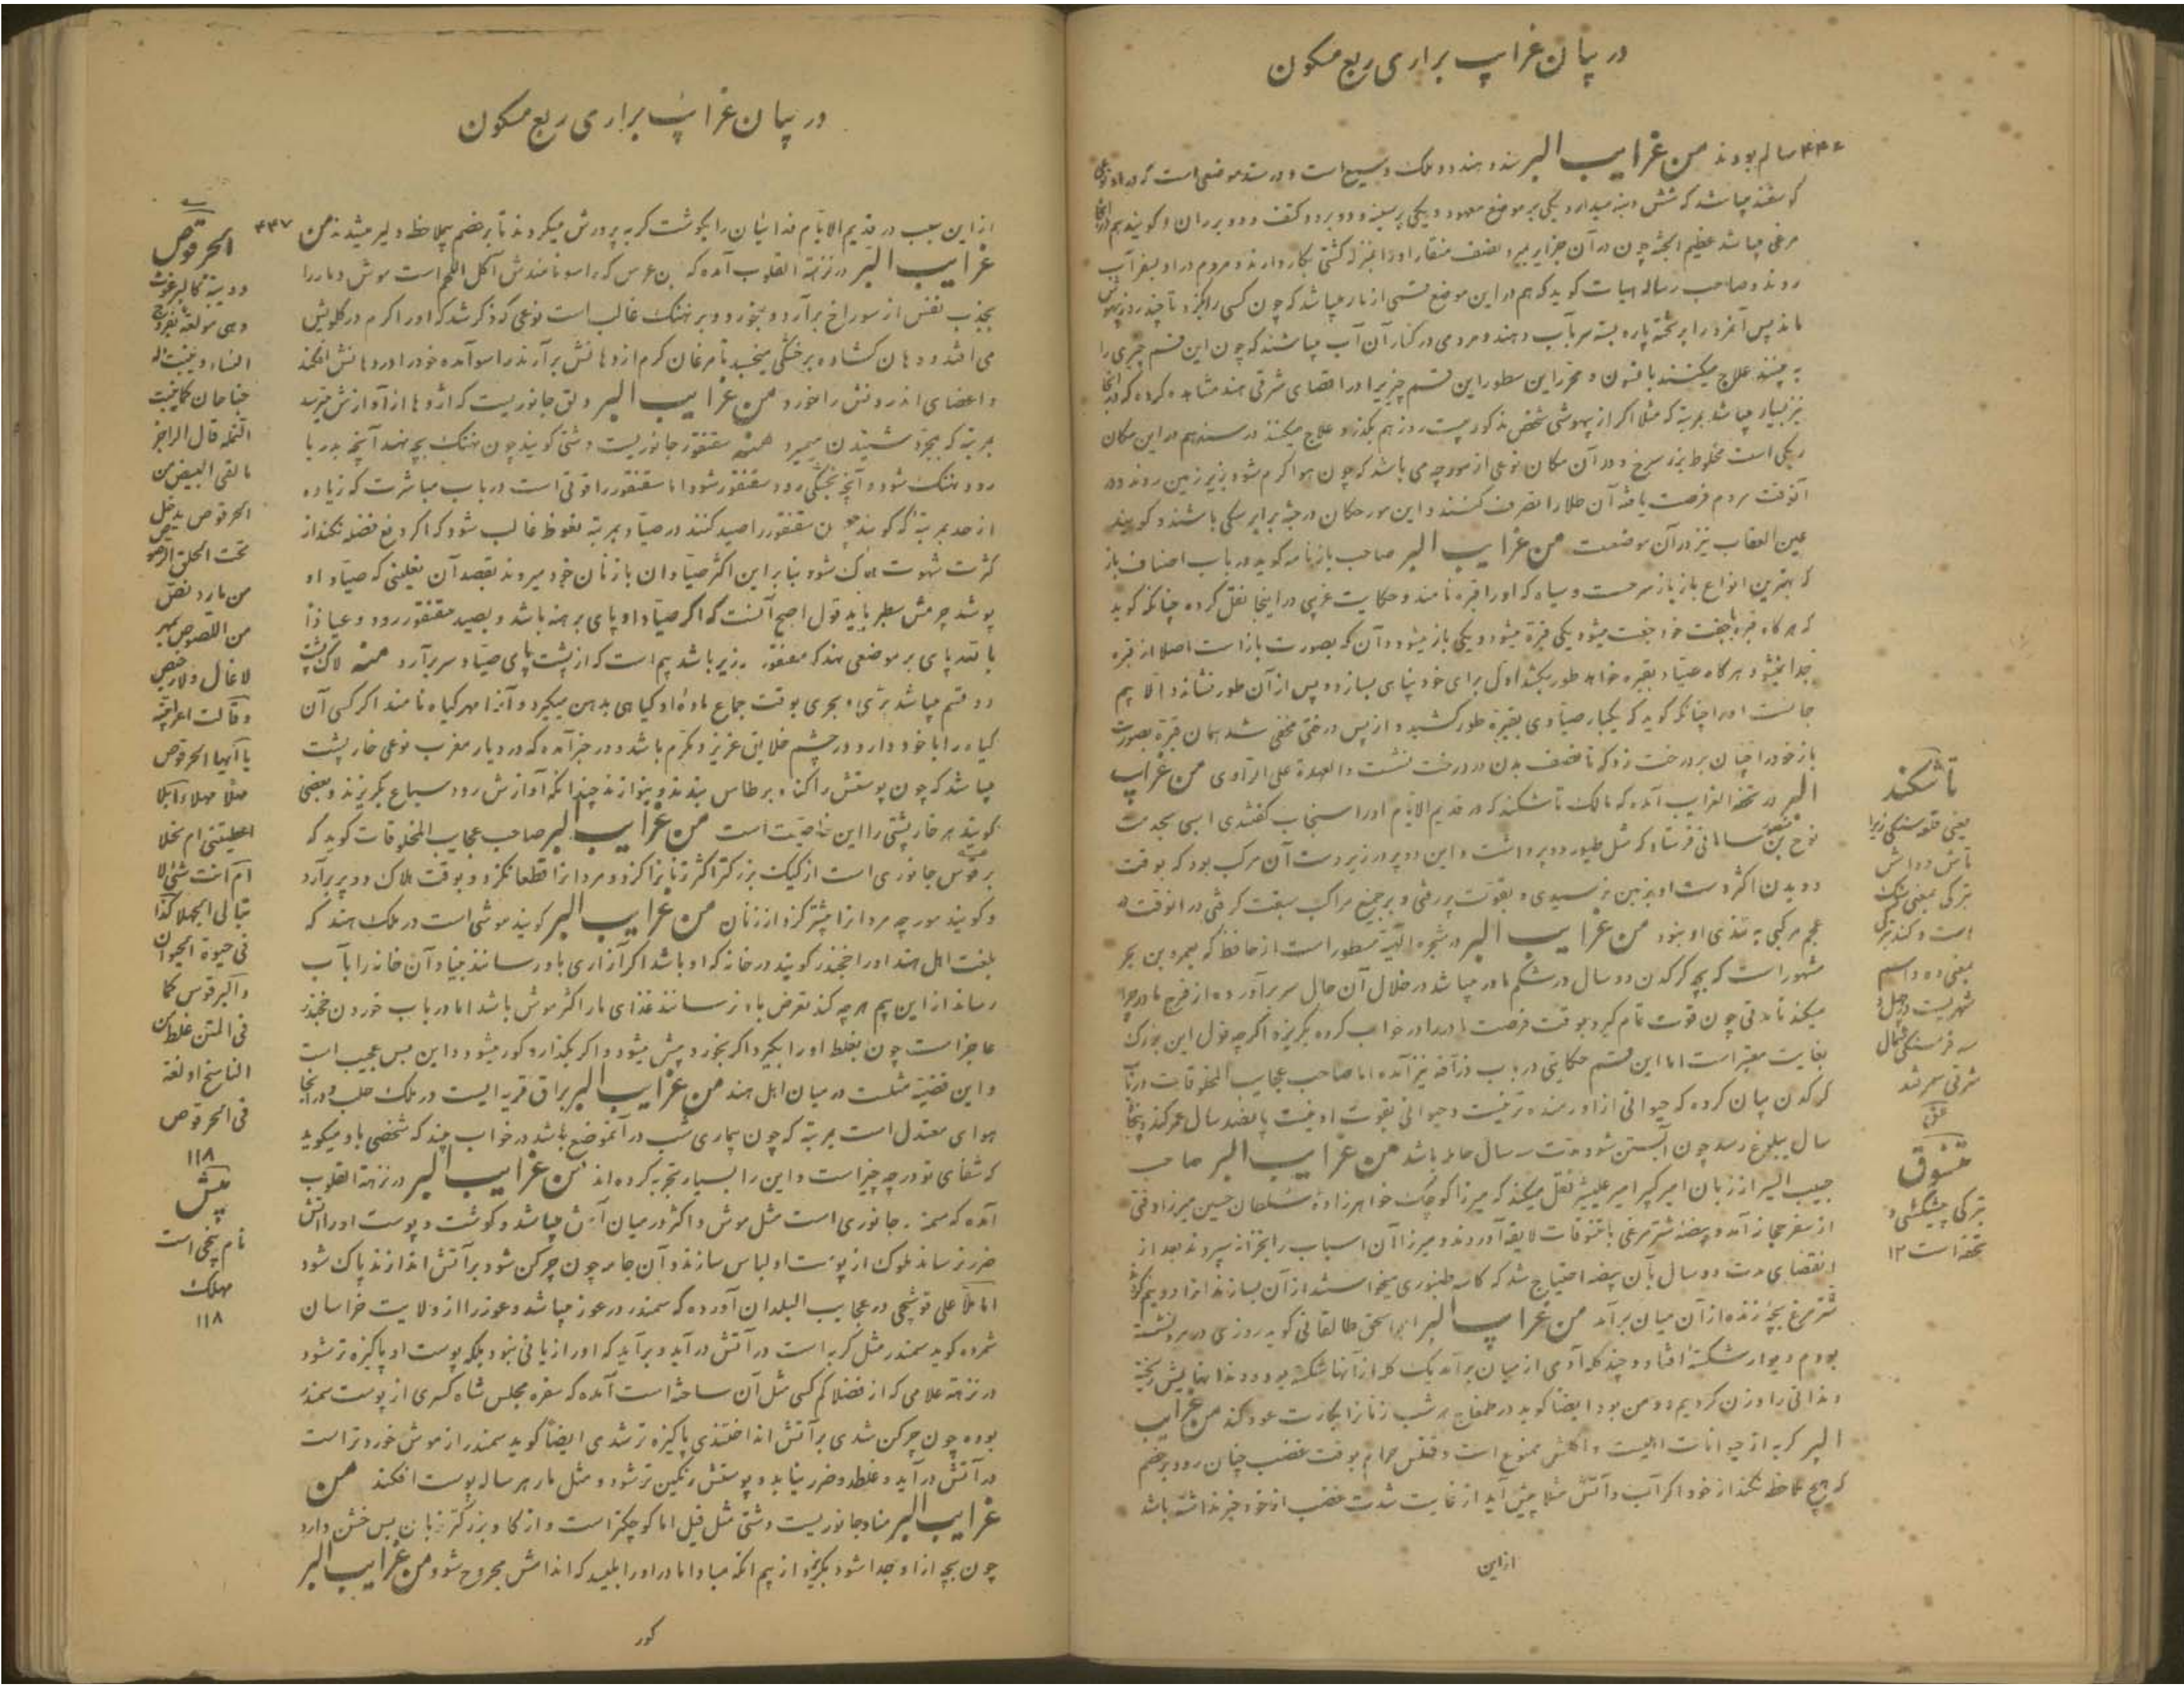 در بیان غرایب براری ربع مسکون
۴۳۶ سالم بودند من غرایب البر سند و هند دو ملک وسیع است و در سند موضعی است که در او نوعی
گوسفند میباشد که شش دنبه میدارد یکی بر موضع معهود و یکی بر سینه و دو بر دو کتف و دو بر ران و گویند هم در آنجا
مرغی میباشد عظیم الجثه چون در آن جزایر بمیرد نصف منقار او را بمنزله کشتی بکار دارند و مردم در او بسفر آب
روند و صاحب رساله هیات گوید که هم در این موضع قسمی از مار میباشد که چون کسی را بگزد تا چند روز بیهوش
ماند پس آنمرد را بر تخته پاره بسته سر بآب دهند و مردمی در کنار آن آب میباشند که چون این قسم چیزی را
به بینند علاج میکنند بافسون و محرر این سطور این قسم چیز را در اقصای شرقی هند مشاهده کرده که در آنجا
نیز بسیار میباشد بمرتبه که مثلا اگر از بیهوشی شخص مذکور بیست روز هم بگذرد علاج میکنند در سند هم در این مکان
ریگی است مخلوط بزر سرخ و در آن مکان نوعی از مورچه می باشد که چون هوا گرم شود بزیر زمین روند در
آنوقت مردم فرصت یافته آن طلا را تصرف کنند و این مورچکان در جثه برابر سگی باشند و گویند
عین العقاب نیز در آن موضعست من غرایب البر صاحب بازنامه گوید در باب اصناف باز
که بهترین انواع باز باز سرخست و سیاه که او را قره نامند و حکایت غریبی در اینجا نقل کرده چنانکه گوید
که هر گاه قره با جفت خود جفت میشود یکی قره میشود و یکی باز میشود و آن که بصورت باز است اصلا از قره
جدا نمیشود هر گاه صیاد بقره خواهد طور بکشد اول برای خود پناهی بسازد و پس از آن طور نشاند و الا بیم
جانست او را چنانکه گوید که یکبار صیادی بقره طور کشید و از پس درختی مخفی شد همان قره بصورت
باز خود را چنان بر درخت زد که تا نصف بدن در درخت نشست و العهدة علی الراوی من غرایب
البر در تحفة الغرایب آمده که مالک تاشکند که در قدیم الایام او را سنجاب گفتندی اسبی بخدمت
نوح بن منصور سامانی فرستاد که مثل طیور دو پر داشت و این دو پر در زیر دست آن مرکب بود که بوقت
دویدن اکثر دست او بزمین نرسیدی و بقوت پر رفتی و بر جمیع مراکب سبقت گرفتی در آنوقت در
عجم مرکبی به تندی او نبود من غرایب البر در شجره الهیه مسطور است از حافظ که بعمرو بن بحر
مشهور است که بچه کرکدن دو سال در شکم مادر میباشد در خلال آن حال سر برآورده از فرج مادر چرا
میکند تا مدتی چون قوت تمام گیرد بوقت فرصت مادر را در خواب کرده بگریزد اگرچه قول این بزرگ
بغایت معتبر است اما این قسم حکایتی در باب زرافه نیز آمده اما صاحب عجایب المخلوقات در باب
کرکدن بیان کرده که حیوانی از او درنده تر نیست و حیوانی بقوت او نیست پانصد سال عمر کند و پنجاه
سال ببلوغ رسد چون آبستن شود مدت سه سال حامله باشد من غرایب البر صاحب
حبیب السیر از زبان امیر کبیر امیر علیشیر نقل میکند که میرزا کوچک خواهرزاده سلطان حسین میرزا وقتی
از سفر حجاز آمده بیضه شترمرغی با تنسوقات لایقه آوردند و میرزا آن اسباب را بخزانه سپردند بعد از
انقضای مدت دو سال بآن بیضه احتیاج شد که کاسه طنبوری میخواستند از آن بسازند آنرا دو نیم کردند
شترمرغ بچه زنده از آن میان برآمد من غرایب البر ابو اسحق طالقانی گوید روزی در مرو نشسته
بودم دیوار شکسته افتاد و چند کله آدمی از میان برآمد یک کله از آنها شکسته بود و دندانهایش ریخته
دندانی را وزن کردیم دو من بود ایضا گوید در طمغاج هر شب زنانرا بکارت عود کند من غرایب
البر گربه از حیوانات اهلیست و اکلش ممنوع است و قتلش حرام بوقت غضب چنان رود بر خصم
که هیچ ملاحظه نکند از خود اگر آب و آتش مثلا پیش آید از غایت شدت غضب از خود خبر نداشته باشد
از این
تاشکند
یعنی قلعه سنگی زیرا
تاش و داش
ترکی بمعنی سنگ
است و کند ترکی
بمعنی ده و اسم
شهریست در چهل و
سه فرسنگی شمال
شرقی سمرقند
تنسوق
بترکی پیشکشی و
تحفه است ۱۲
در بیان غرایب براری ربع مسکون
۴۳۷ از این سبب در قدیم الایام فدائیان را بگوشت گربه پرورش میکردند تا بر خصم بیملاحظه دلیر میشدند من
غرایب البر در نزهة القلوب آمده که ابن عرس که راسو نامندش آکل اللحم است موش و مار را
بجذب نفس از سوراخ برآرد و بخورد و بر نهنگ غالب است نوعی که ذکر شد که او را کرم در گلویش
می افتد و دهان گشاده بر خشکی میخسبد تا مرغان کرم از دهانش برآرند راسو آمده خود را در دهانش افکند
و اعضای اندرونش را خورد من غرایب البر دلق جانوریست که اژدها از آوازش بترسد
بمرتبه که بمجرد شنیدن بمیرد منه سقنقور جانوریست دشتی گویند چون نهنگ بچه نهد آنچه بدریا
رود نهنگ شود و آنچه بخشکی رود سقنقور شود اما سقنقور را قوتی است در باب مباشرت که زیاده
از حد بمرتبه که گویند چون سقنقور را صید کنند در صیاد بمرتبه نعوظ غالب شود که اگر دفع فضله نکند از
کثرت شهوت هلاک شود بنابراین اکثر صیادان با زنان خود میروند بقصد آن نعلینی که صیاد او
پوشد چرمش سطبر باید قول اصح آنست که اگر صیاد او پای برهنه باشد و بصید سقنقور رود و عیاذا
بالله پای بر موضعی نهد که سقنقور بزیر باشد بیم است که از پشت پای صیاد سر برآرد منه لاک پشت
دو قسم میباشد بری و بحری بوقت جماع ماده او گیاهی بدهن میگیرد و آنرا مهر گیاه نامند اگر کسی آن
گیاه را با خود دارد در چشم خلایق عزیز و مکرم باشد و در خبر آمده که در دیار مغرب نوعی خارپشت
میباشد که چون پوستش را کنده بر طاس بندند و بنوازند چندانکه آوازش رود سباع بگریزند و بعضی
گویند هر خارپشتی را این خاصیت است من غرایب البر صاحب عجایب المخلوقات گوید که
برقوس جانوری است از کیک بزرگتر اکثر زنانرا گزد و مردانرا قطعا نگزد و بوقت هلاک دو پر برآرد
و گویند مورچه مردانرا بیشتر گزد از زنان من غرایب البر گویند موشی است در ملک هند که
بلغت اهل هند او را خنجندر گویند در خانه که او باشد اگر آزاری باو رسانند بنیاد آن خانه را بآب
رساند از این بیم هر چه کند تعرض باو نرسانند غذای مار اکثر موش باشد اما در باب خوردن خنجندر
عاجز است چون بغلط او را بگیرد اگر بخورد پیش میشود و اگر بگذارد کور میشود و این بس عجیب است
و این قضیه مثلست در میان اهل هند من غرایب البر براق قریه ایست در ملک حلب و در آنجا
هوای معتدل است بمرتبه که چون بیماری شب در آنموضع باشد در خواب بیند که شخصی باو میگوید
که شفای تو در چه چیز است و این را بسیار تجربه کرده اند من غرایب البر در نزهة القلوب
آمده که سمندر جانوری است مثل موش و اکثر در میان آتش میباشد و گوشت و پوست او را آتش
ضرر نرساند ملوک از پوست او لباس سازند و آن جامه چون چرکن شود بر آتش اندازند پاک شود
اما ملا علی قوشچی در عجایب البلدان آورده که سمندر در غور میباشد و غور را از ولایت خراسان
شمرده گوید سمندر مثل گربه است در آتش درآید و برآید که او را زیانی نبود بلکه پوست او پاکیزه تر شود
در نزهة علامی که از فضلا کم کسی مثل آن ساخته است آمده که سفره مجلس شاه کسری از پوست سمندر
بوده چون چرکن شدی بر آتش انداختندی پاکیزه تر شدی ایضا گوید سمندر از موش خوردتر است
در آتش درآید و غلطد و ضرر نیابد و پوستش رنگین تر شود و مثل مار هر ساله پوست افکند من
غرایب البر مناد جانوریست دشتی مثل فیل اما کوچکتر است و از گاو بزرگتر زبان بس خشن دارد
چون بچه از او جدا شود بگریزد از بیم آنکه مبادا مادر او را بلیسد که اندامش مجروح شود من غرایب البر
کور
الحرقوص
دویبة کالبرغوث
وهی مولعة بفروج
النساء و ینبت له
جناحان کما ینبت
النملة قال الراجز
ما لقی البیض من
الحرقوص یدخل
تحت الحلق المرصوص
من مارد لص
من اللصوص بمهر
لا غال ولا رخیص
و قالت اعرابیة
یا ایها الحرقوص
مهلا مهلا أابلا
اعطیتنی ام نخلا
ام انت شئ لا
تبالی الجهلا کذا
فی حیوة الحیوان
و البرقوس کما
فی المتن غلط من
الناسخ او لغة
فی الحرقوص
۱۱۸
پیش
نام بیخی است
مهلک
۱۱۸